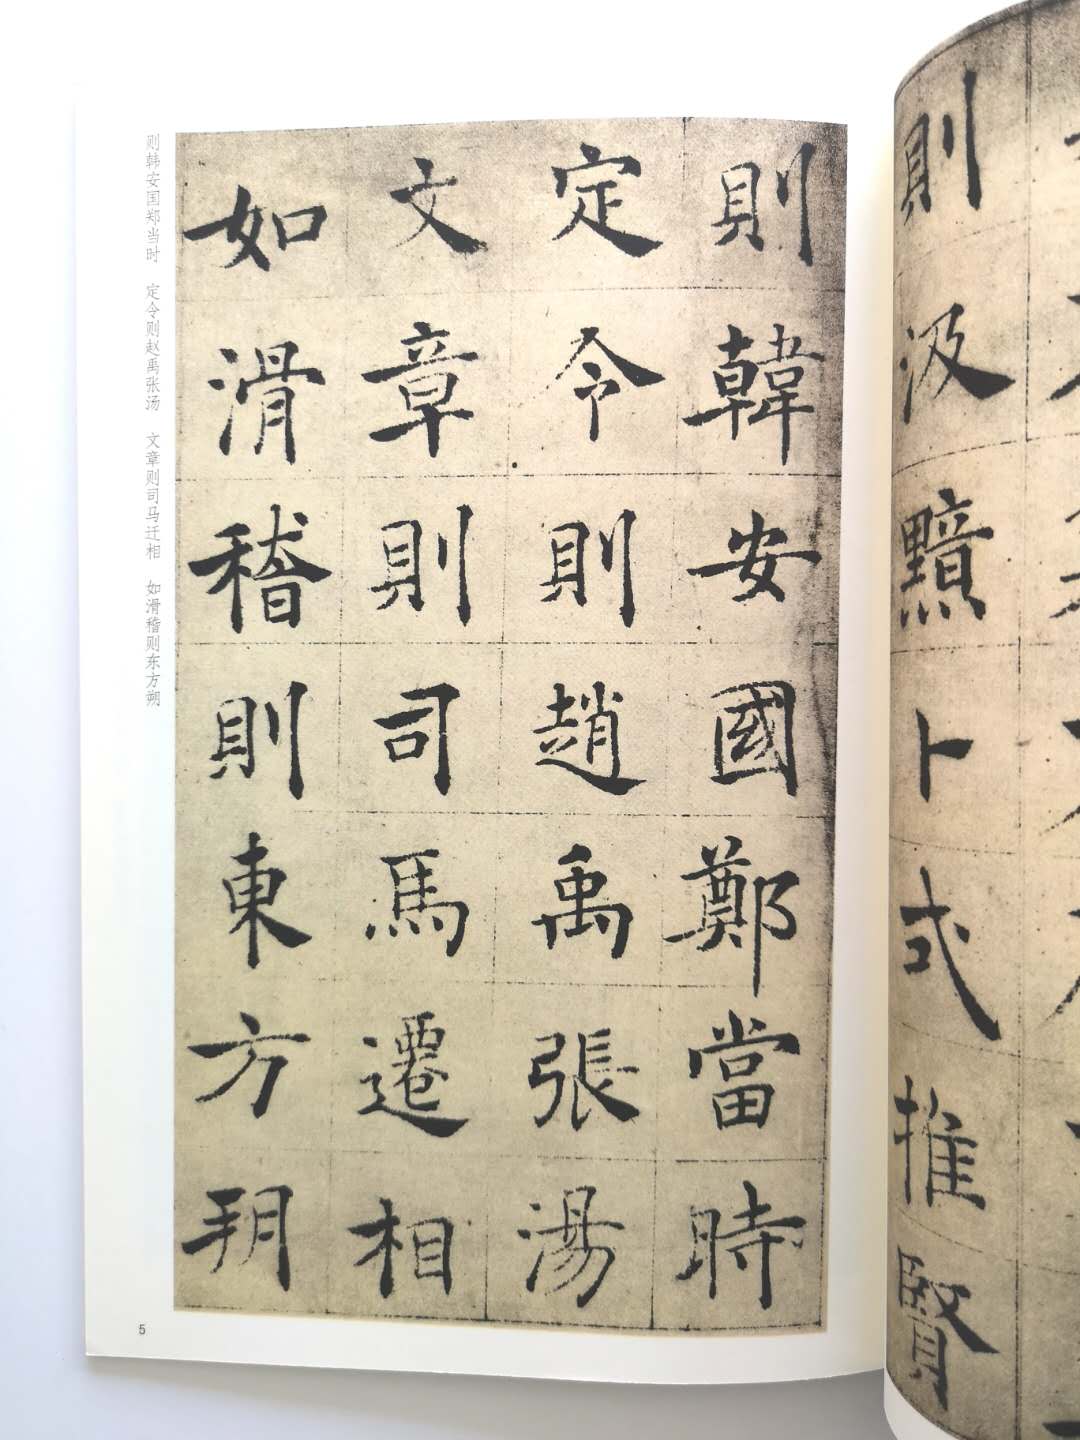 則韓安國鄭當時
定令則趙禹張湯
文章則司馬遷相
如滑稽則東方朔
则韩安国郑当时 定令则赵禹张汤 文章则司马迁相 如滑稽则东方朔
5
則汲黯卜式推賢